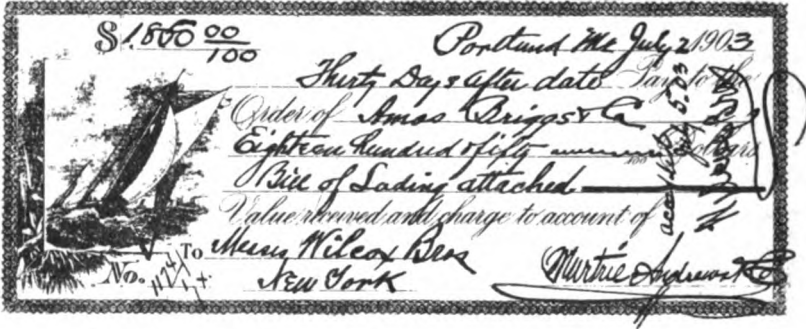 $1.850 00/100 Portland Me July 2 1903
Thirty Days after date Pay to the
Order of Amos Briggs & Co
Eighteen Hundred & fifty Dollars
Bill of Lading attached
Value received and charge to account of
To Messrs Wilcox Bros
No. New York
Murtrie Andrews & Co